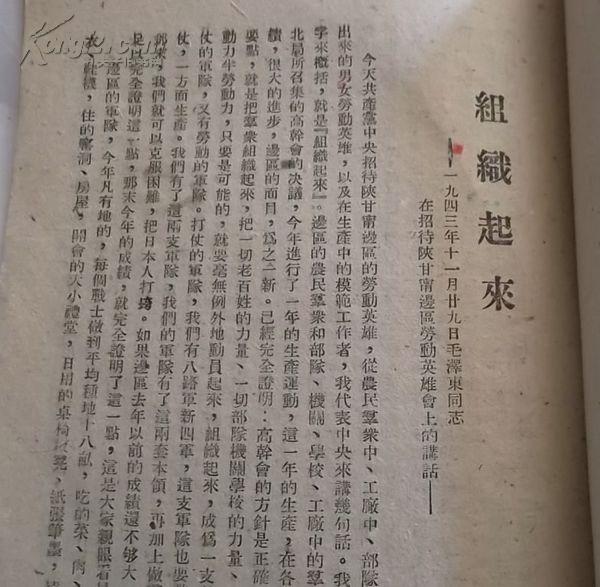 組織起來
一九四三年十一月廿九日毛澤東同志
在招待陝甘甯邊區勞動英雄會上的講話——
今天共產黨中央招待陝甘甯邊區的勞動英雄，從農民羣衆中、工廠中、部隊
出來的男女勞動英雄，以及在生產中的模範工作者，我代表中央來講幾句話。我
字來概括，就是『組織起來』。邊區的農民羣衆和部隊、機關、學校、工廠中的羣
北局所召集的高幹會的決議，今年進行了一年的生產運動，這一年的生產，在各
績，很大的進步，邊區的面目，爲之一新。已經完全證明：高幹會的方針是正確
要點，就是把羣衆組織起來，把一切老百姓的力量、一切部隊機關學校的力量、
動力半勞動力，只要是可能的，就要毫無例外地動員起來，組織起來，成爲一支
仗的軍隊，又有勞動的軍隊。打仗的軍隊，我們有八路軍新四軍，這支軍隊也要
仗，一方面生產。我們有了這兩支軍隊，我們的軍隊有了這兩套本領，再加上做羣
，我們就可以克服困難，把日本人打垮。如果邊區去年以前的成績還不够大
完全證明這一點，那末今年的成績，就完全證明了這一點，這是大家親眼看
邊區的軍隊，今年凡有地的，每個戰士做到平均種地十八畝，吃的菜、肉、
鞋襪，住的窰洞、房屋，開會的大小禮堂，日用的桌椅板凳，紙張筆墨，